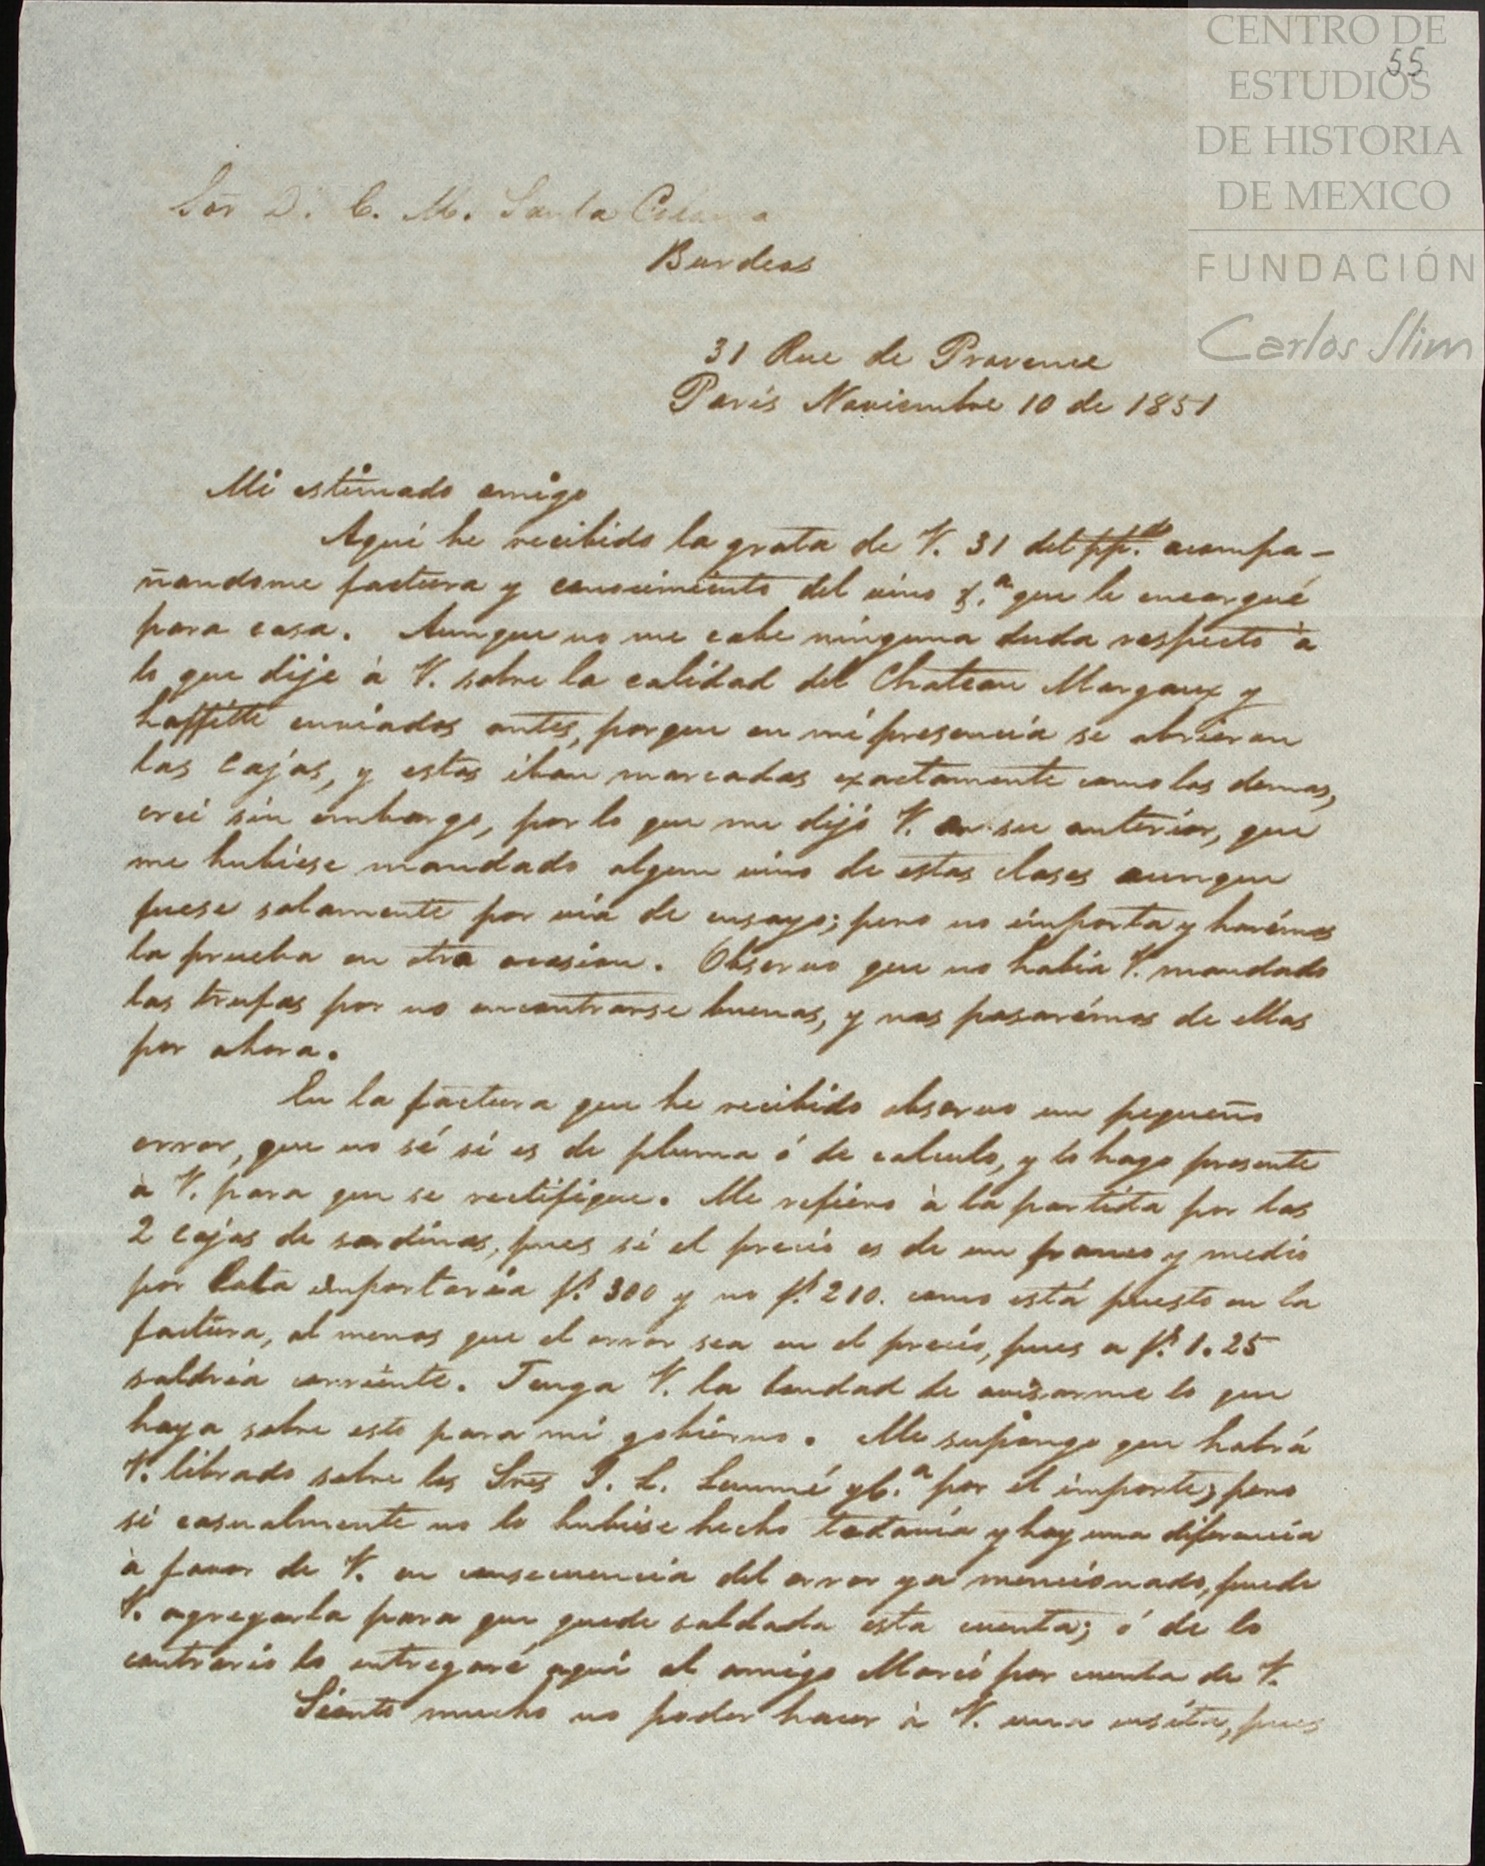 CENTRO DE
55
ESTUDIOS
DE HISTORIA
DE MEXICO
FUNDACIÓN
Carlos Slim
Sor D. C. M. Santa
Burdeos
31 Rue de Provence
Paris Noviembre 10 de 1851
Mi estimado amigo
Aquí he recibido la grata de V. 31 del pp.do acompa-
ñandome factura y conocimiento del vino &.a que le encargué
para casa. Aunque no me cabe ninguna duda respecto à
lo que dije à V. sobre la calidad del Chateau Margaux y
Laffitte enviados antes, porque en mi presencia se abrieron
las cajas, y estas iban marcadas exactamente como las demas,
crei sin embargo, por lo que me dijó V. en su anterior, que
me hubiese mandado algun vino de estas clases aunque
fuese solamente por via de ensayo; pero no importa y harémos
la prueba en otra ocasion. Observo que no habia V. mandado
las trufas por no encontrarse buenas, y nos pasarémos de ellas
por ahora.
En la factura que he recibido observo un pequeño
error, que no sé si es de pluma ó de calculo, y lo hago presente
à V. para que se rectifique. Me refiero à la partida por las
2 cajas de sardinas, pues si el precio es de un franco y medio
por lata importaria f.s 300 y no f.s 210. como está puesto en la
factura, al menos que el error sea en el precio, pues a f.s 1.25
saldria corriente. Tenga V. la bondad de avisarme lo que
haya sobre esto para mi gobierno. Me supongo que habrá
V. librado sobre los Sres J. L. Laumé y C.a por el importe; pero
si casualmente no lo hubiese hecho todavia y hay una diferencia
à favor de V. en consecuencia del error ya mencionado, puede
V. agregarla para que quede saldada esta cuenta; ó de lo
contrario lo entregaré aquí al amigo Marcó por cuenta de V.
Siento mucho no poder hacer à V. una visita, pues